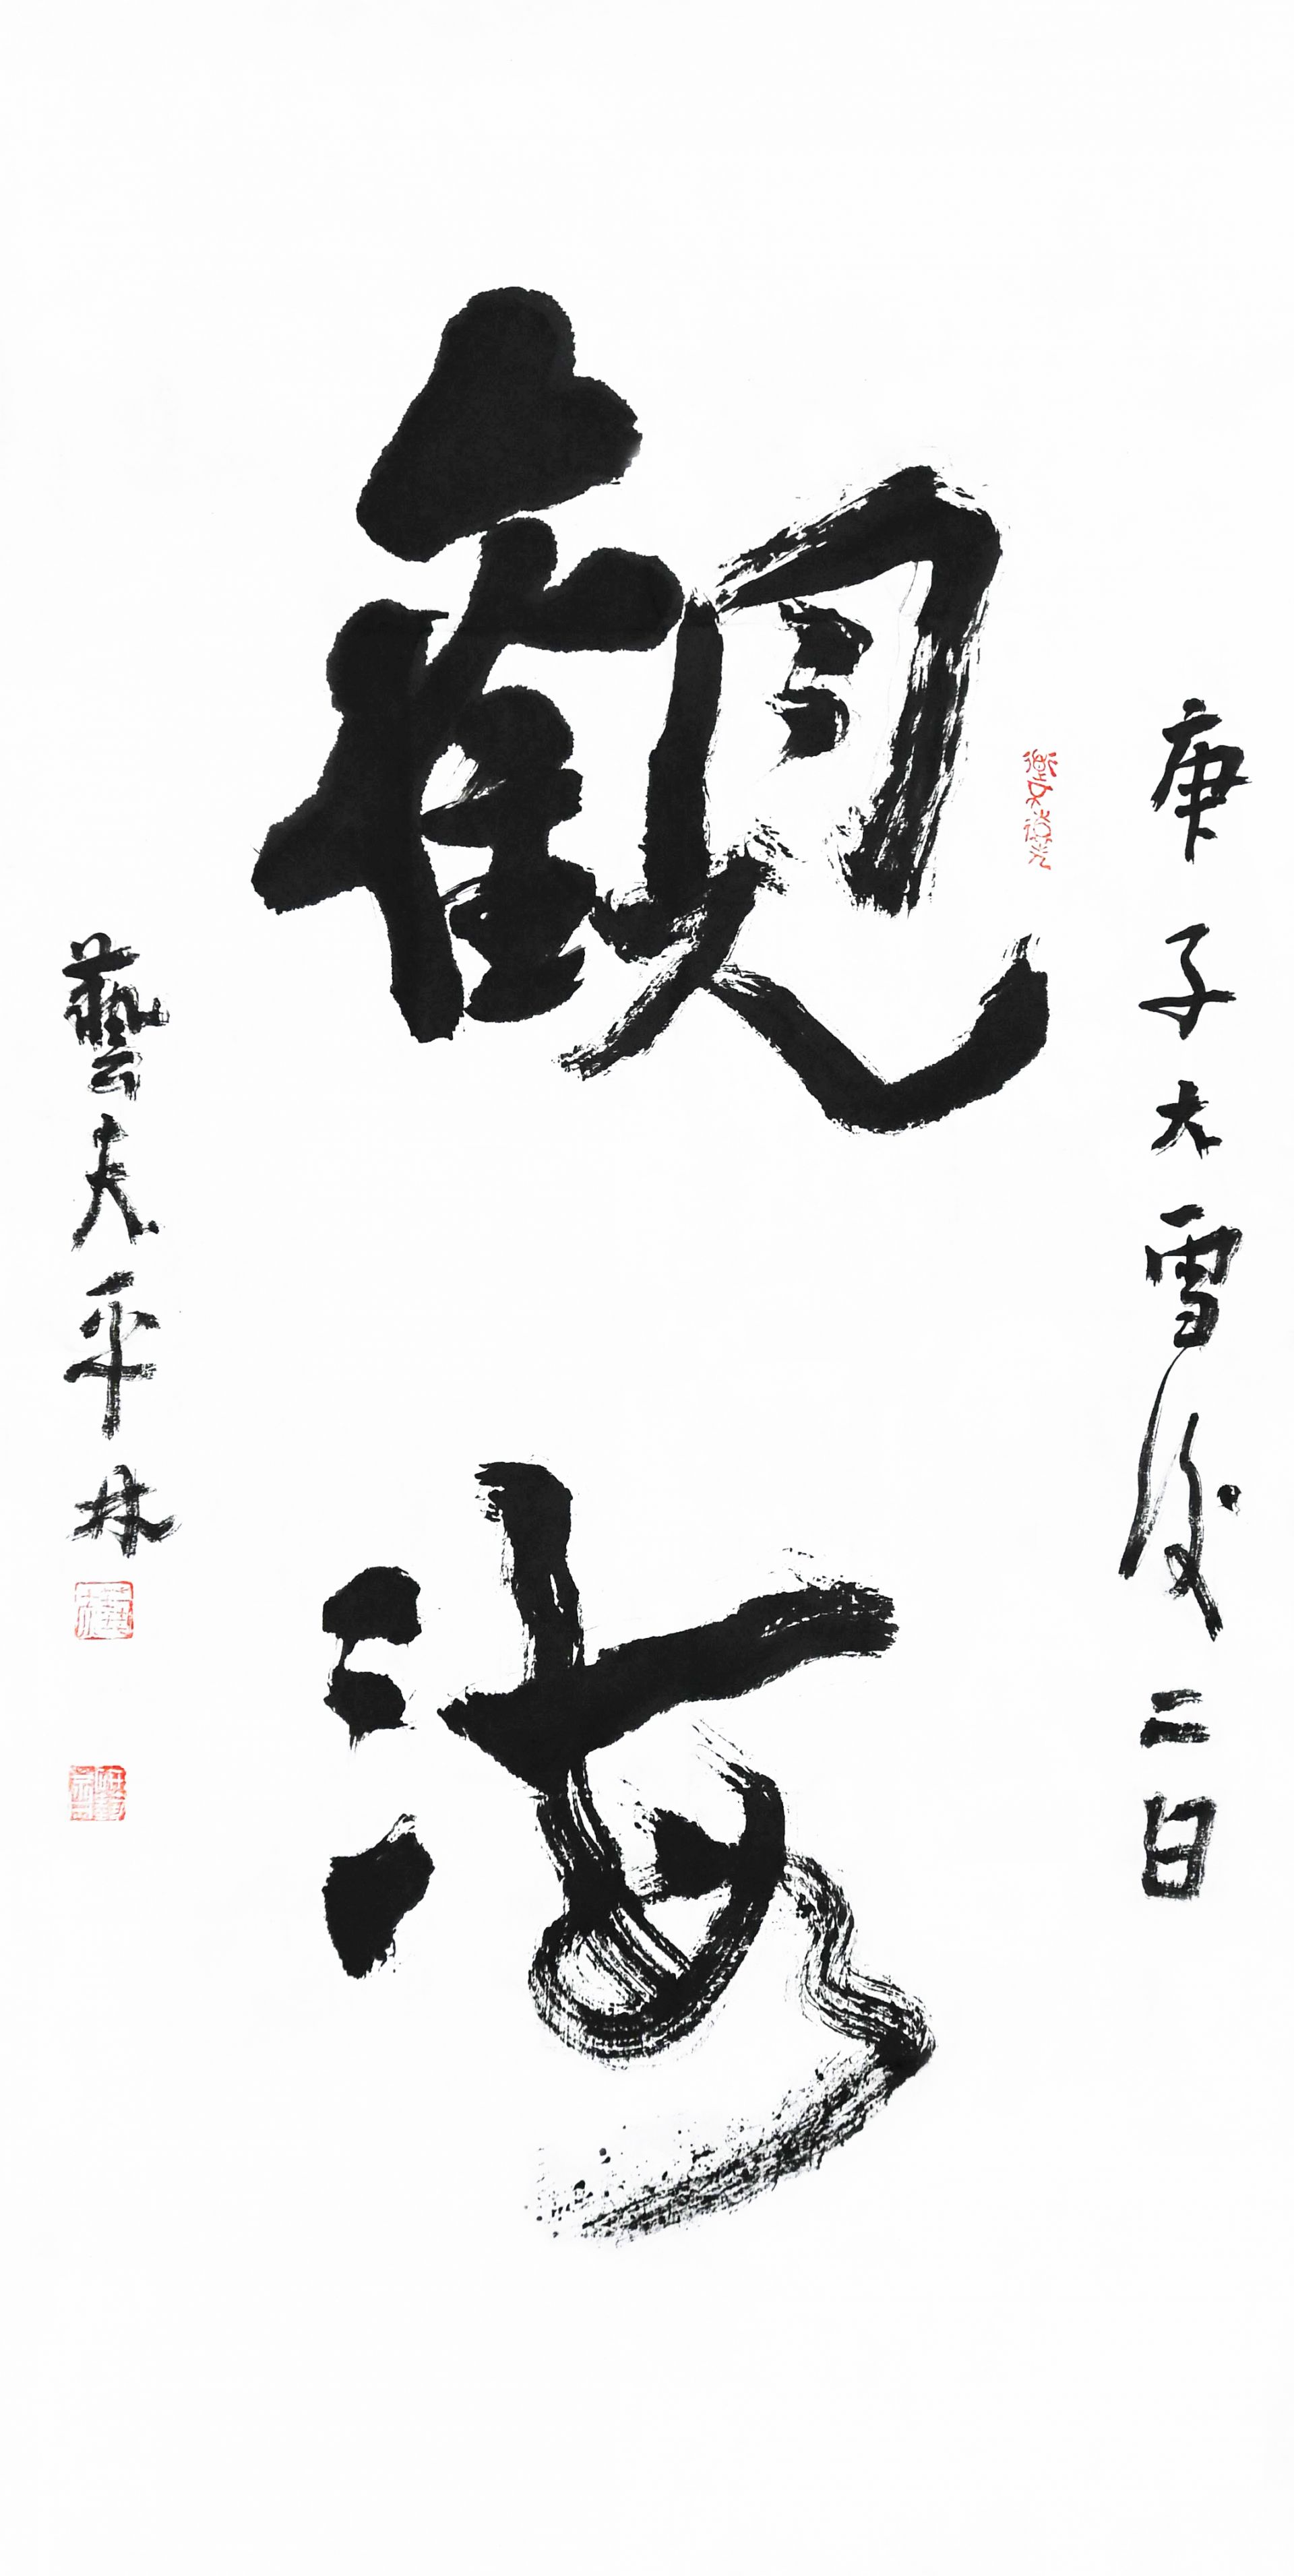 庚子大雪後二日
觀海
藝夫平林